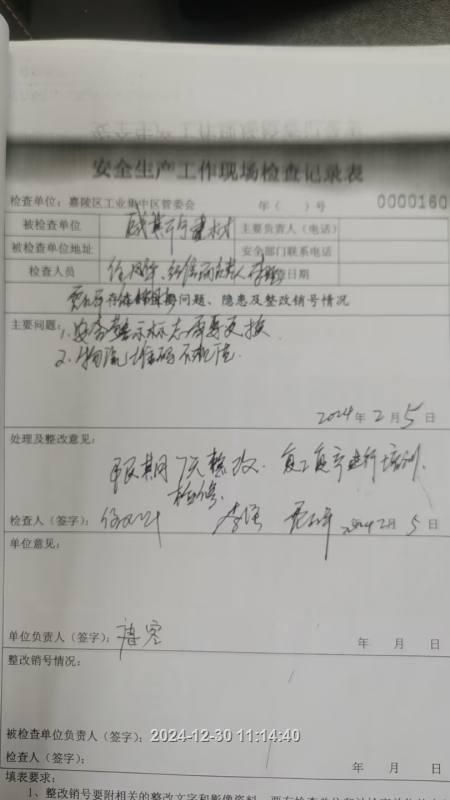 安全生产工作现场检查记录表
检查单位：嘉陵区工业集中区管委会 年（ ）号 0000160
被检查单位 建材 主要负责人（电话）
被检查单位地址 安全部门联系电话
检查人员 日期
问题、隐患及整改销号情况
主要问题：1、安全警示标志需要更换
2、物流堆码不规范。
2024年2月5日
处理及整改意见：
限期7天整改. 复工复产进行培训.
检修.
检查人（签字）： 2024 2月5日
单位意见：
单位负责人（签字）： 年 月 日
整改销号情况：
被检查单位负责人（签字）：
2024-12-30 11:14:40
检查人（签字）： 年 月 日
填表要求：
1、整改销号要附相关的整改文字和影像资料